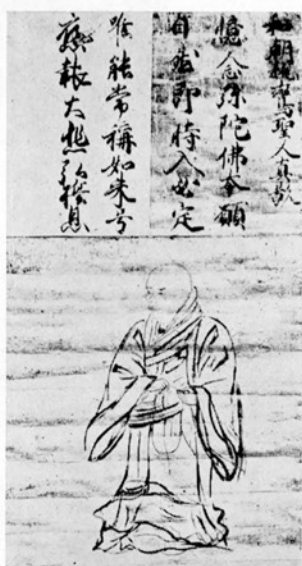 和朝親鸞聖人真影
憶念弥陀佛本願
自然即時入必定
唯能常稱如来号
應報大悲弘誓恩